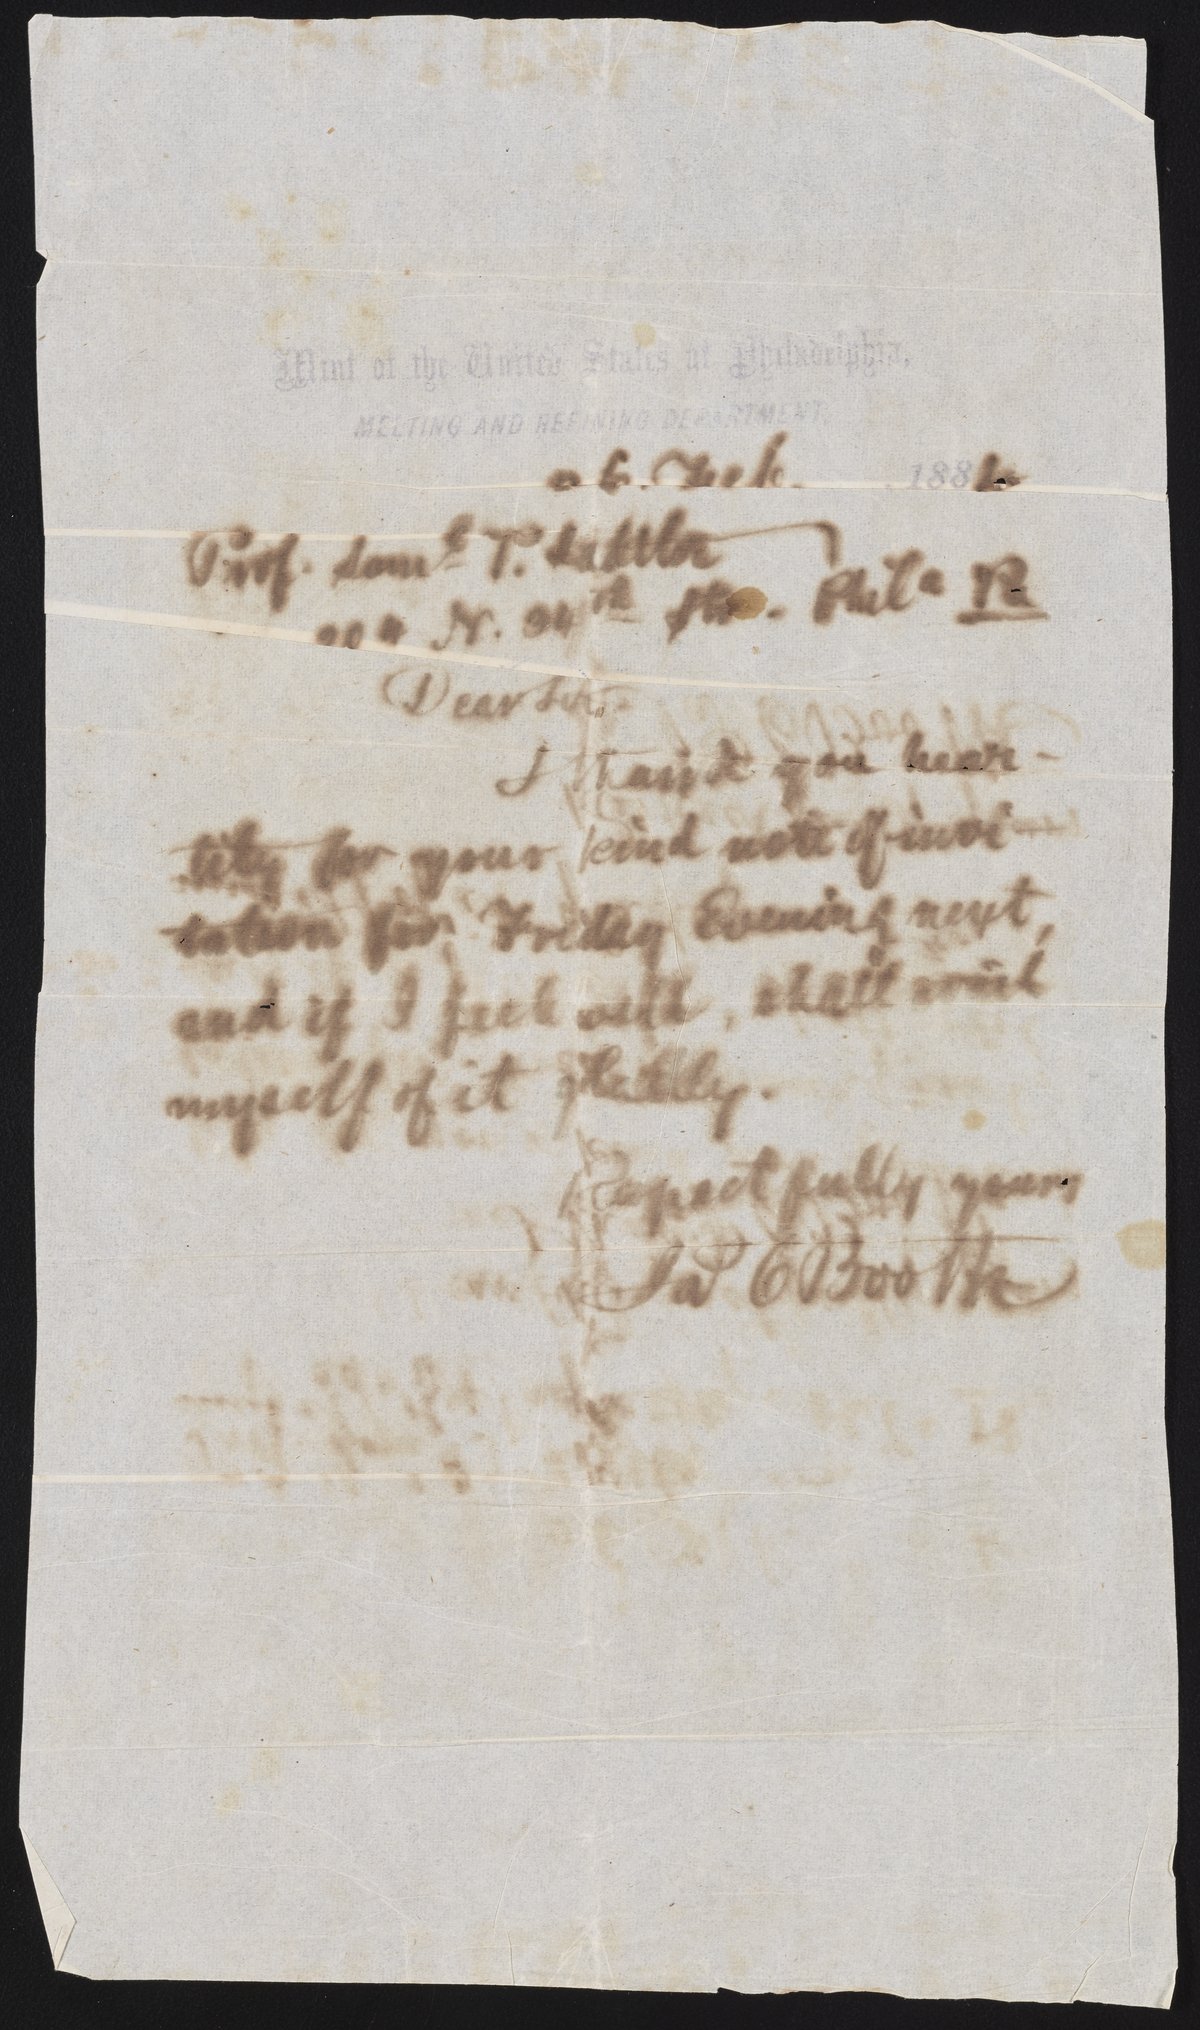 Mint of the United States at Philadelphia,
MELTING AND REFINING DEPARTMENT.
Feb. 188
Prof. Saml. P. Sadtler
204 N. 34th Str. Phila Pa
Dear Sir.
I thank you hear-
tily for your kind note of invi-
tation for Friday Evening next,
and if I feel well, shall avail
myself of it gladly.
Respectfully yours
Jas C Booth